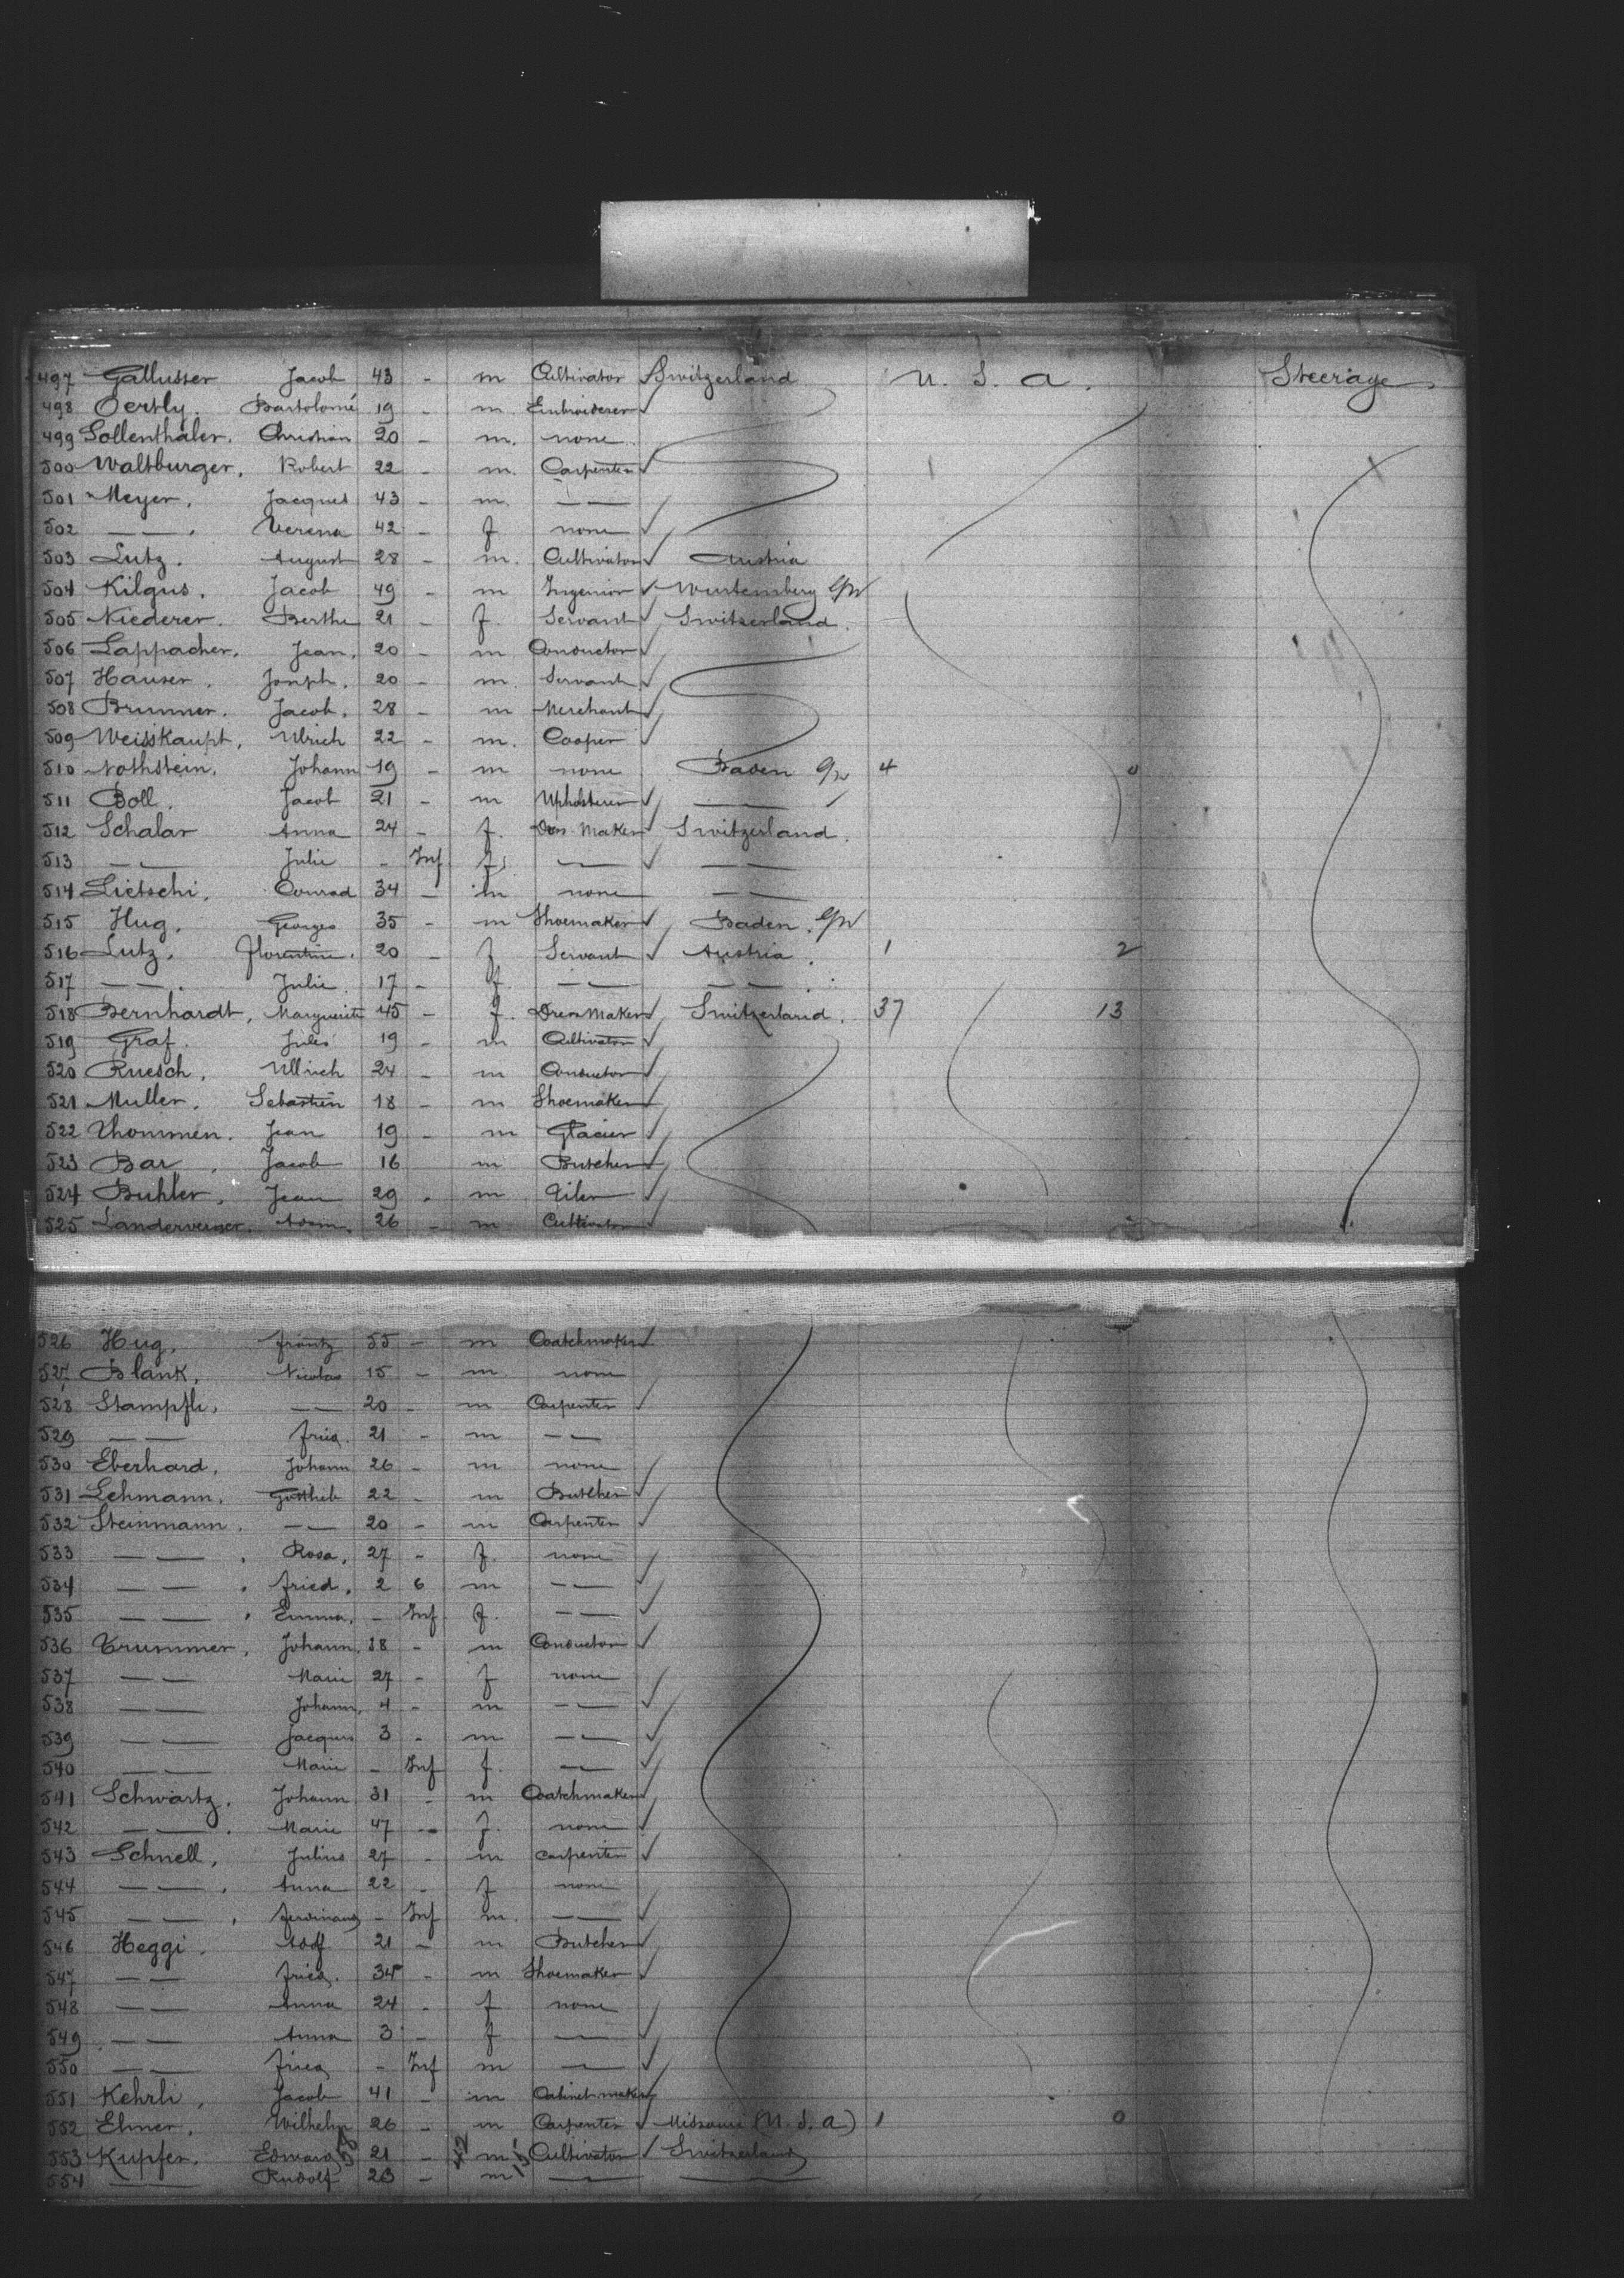 497 Gallusser Jacob 43 - m Cultivator Switzerland U. S. A. Steerage
498 Oertly. Bartolomé 19 - m. Embroiderer
499 Sollenthaler. Christian 20 - m. none
500 Waltburger, Robert 22 - m. Carpenter
501 Meyer, Jacques 43 - m. — —
502 — — . Verena 42 - f none
503 Lutz. August 28 - m. Cultivator Austria
504 Kilgus. Jacob 49 - m Ingenior Wurtemberg
505 Niederer. Berthe 21 - f. Servant Switzerland.
506 Lappacher, Jean. 20 - m Conductor
507 Hauser. Joseph. 20 - m. Servant
508 Brunner. Jacob. 28 - m Merchant
509 Weisskaupt, Ulrich 22 - m. Cooper
510 Nothstein. Johann 19 - m none Baden 4 0
511 Boll. Jacob 21 - m Upholsterer — —
512 Schalar Anna 24 - f. Dress Maker Switzerland.
513 — — Julie - Inf f. — — —
514 Lietschi, Conrad 34 - m none — —
515 Hug. Georges 35 - m Shoemaker Baden.
516 Lutz. Florentine. 20 - f Servant Austria. 1 2
517 — — . Julie 17 - f. — — — —
518 Bernhardt, Marguerite 45 - f. Dress Maker Switzerland. 37 13
519 Graf. Jules 19 - m Cultivator
520 Ruesch, Ullrich 24 - m Conductor
521 Muller. Sebastien 18 - m Shoemaker
522 Thommen. Jean 19 - m Glacier
523 Bar, Jacob 16 m Butcher
524 Buhler, Jean 29 - m
525 26 - m Cultivator
526 Hug. Frantz 55 - m Coatchmaker
527 Blank, Nicolas 15 - m none
528 Stampfli, — — 20 - m Carpenter
529 — — Fried. 21 - m — —
530 Eberhard, Johann 26 - m none
531 Lehmann. Gottlieb 22 - m Butcher
532 Steinmann. — — 20 - m Carpenter
533 — — . Rosa, 27 - f. none
534 — — . Fried. 2 6 m — —
535 — — . Emma. - Inf f. — —
536 Trummer, Johann. 38 - m Conductor
537 — — Marie 27 - f none
538 — — Johann. 4 - m — —
539 — — Jacques 3 - m — —
540 — — Marie - Inf f. — —
541 Schwartz. Johann 31 - m Coatchmaker
542 — — . Marie 47 - f. none
543 Schnell, Julius 27 - m carpenter
544 — — . Anna 22 - f none
545 — — . Ferdinand - Inf m. — —
546 Heggi. Adolf 21 - m Butcher
547 — — Fried. 34 - m Shoemaker
548 — — Anna 24 - f none
549 — — Anna 3 - f —
550 — — Fried - Inf m —
551 Kehrli, Jacob 41 - m Cabinetmaker
552 Elmer, Wilhelm 26 - m Carpenter Missouri (U. S. A) 1 0
553 Kupfer. Edward 21 - m Cultivator Switzerland
554 — — Rudolf 23 - m — —